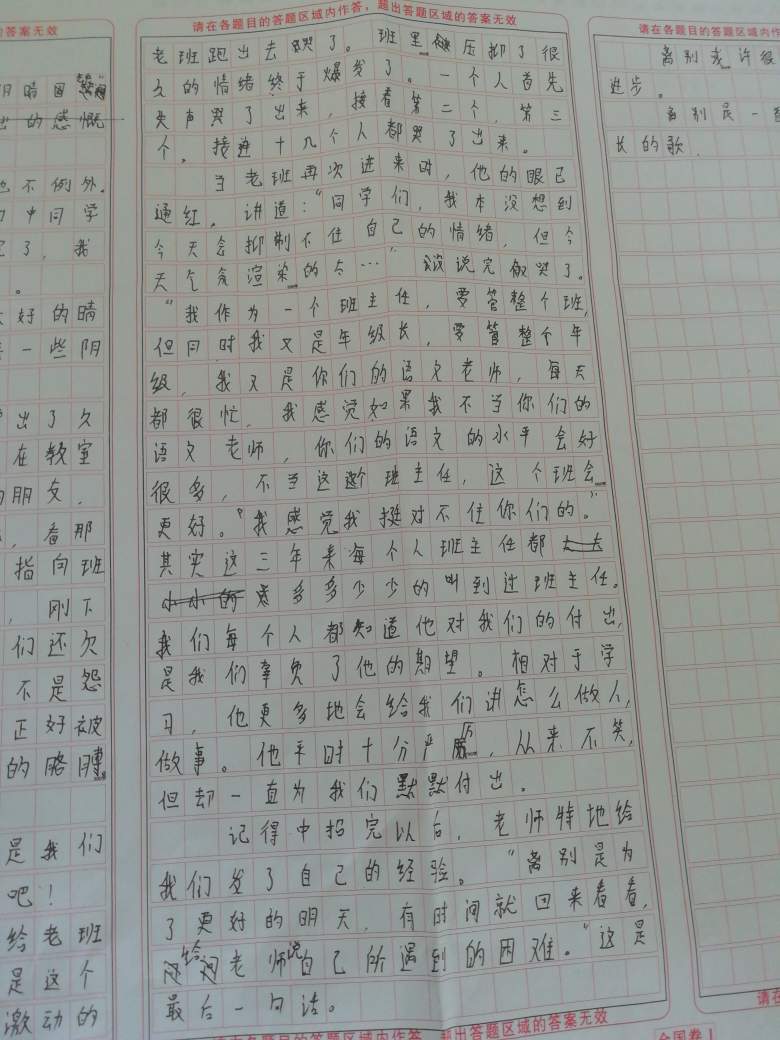 答案无效
阴晴圆
出的感慨
也不例外。
中同学
了，我
。
好的晴
一些阴
出了久
在教室
的朋友，
，看那
指向班
，刚下
们还欠
不是怨
正好被
的胳膊
是我们
吧！
给老班
是这个
激动的
请在各题目的答题区域内作答，超出答题区域的答案无效
老班跑出去哭了。班里压抑了很
久的情绪终于爆发了。一个人首先
失声哭了出来，接着第二个，第三
个，接连十几个人都哭了出来。
当老班再次进来时，他的眼已
通红，讲道：“同学们，我本没想到
今天会抑制不住自己的情绪，但今
天气氛渲染的太…”没说完做哭了。
“我作为一个班主任，要管整个班，
但同时我又是年级长，要管整个年
级，我又是你们的语文老师，每天
都很忙，我感觉如果我不当你们的
语文老师，你们的语文的水平会好
很多，不当这个班主任，这个班会
更好。“我感觉我挺对不住你们的。”
其实这三年来每个人班主任都
多多少少的叫到过班主任。
我们每个人都知道他对我们的付出，
是我们辜负了他的期望。相对于学
习，他更多地会给我们讲怎么做人，
做事。他平时十分严厉，从来不笑，
但却一直为我们默默付出。
记得中招完以后，老师特地给
我们发了自己的经验。“离别是为
了更好的明天，有时间就回来看看，
给老师说自己所遇到的困难。”这是
最后一句话。
请在各题目的答题区域内作答，超出答题区域的答案无效
请在各题目的答题区域内作
离别或许很
进步。
离别是一首
长的歌
请在
全国卷Ⅰ